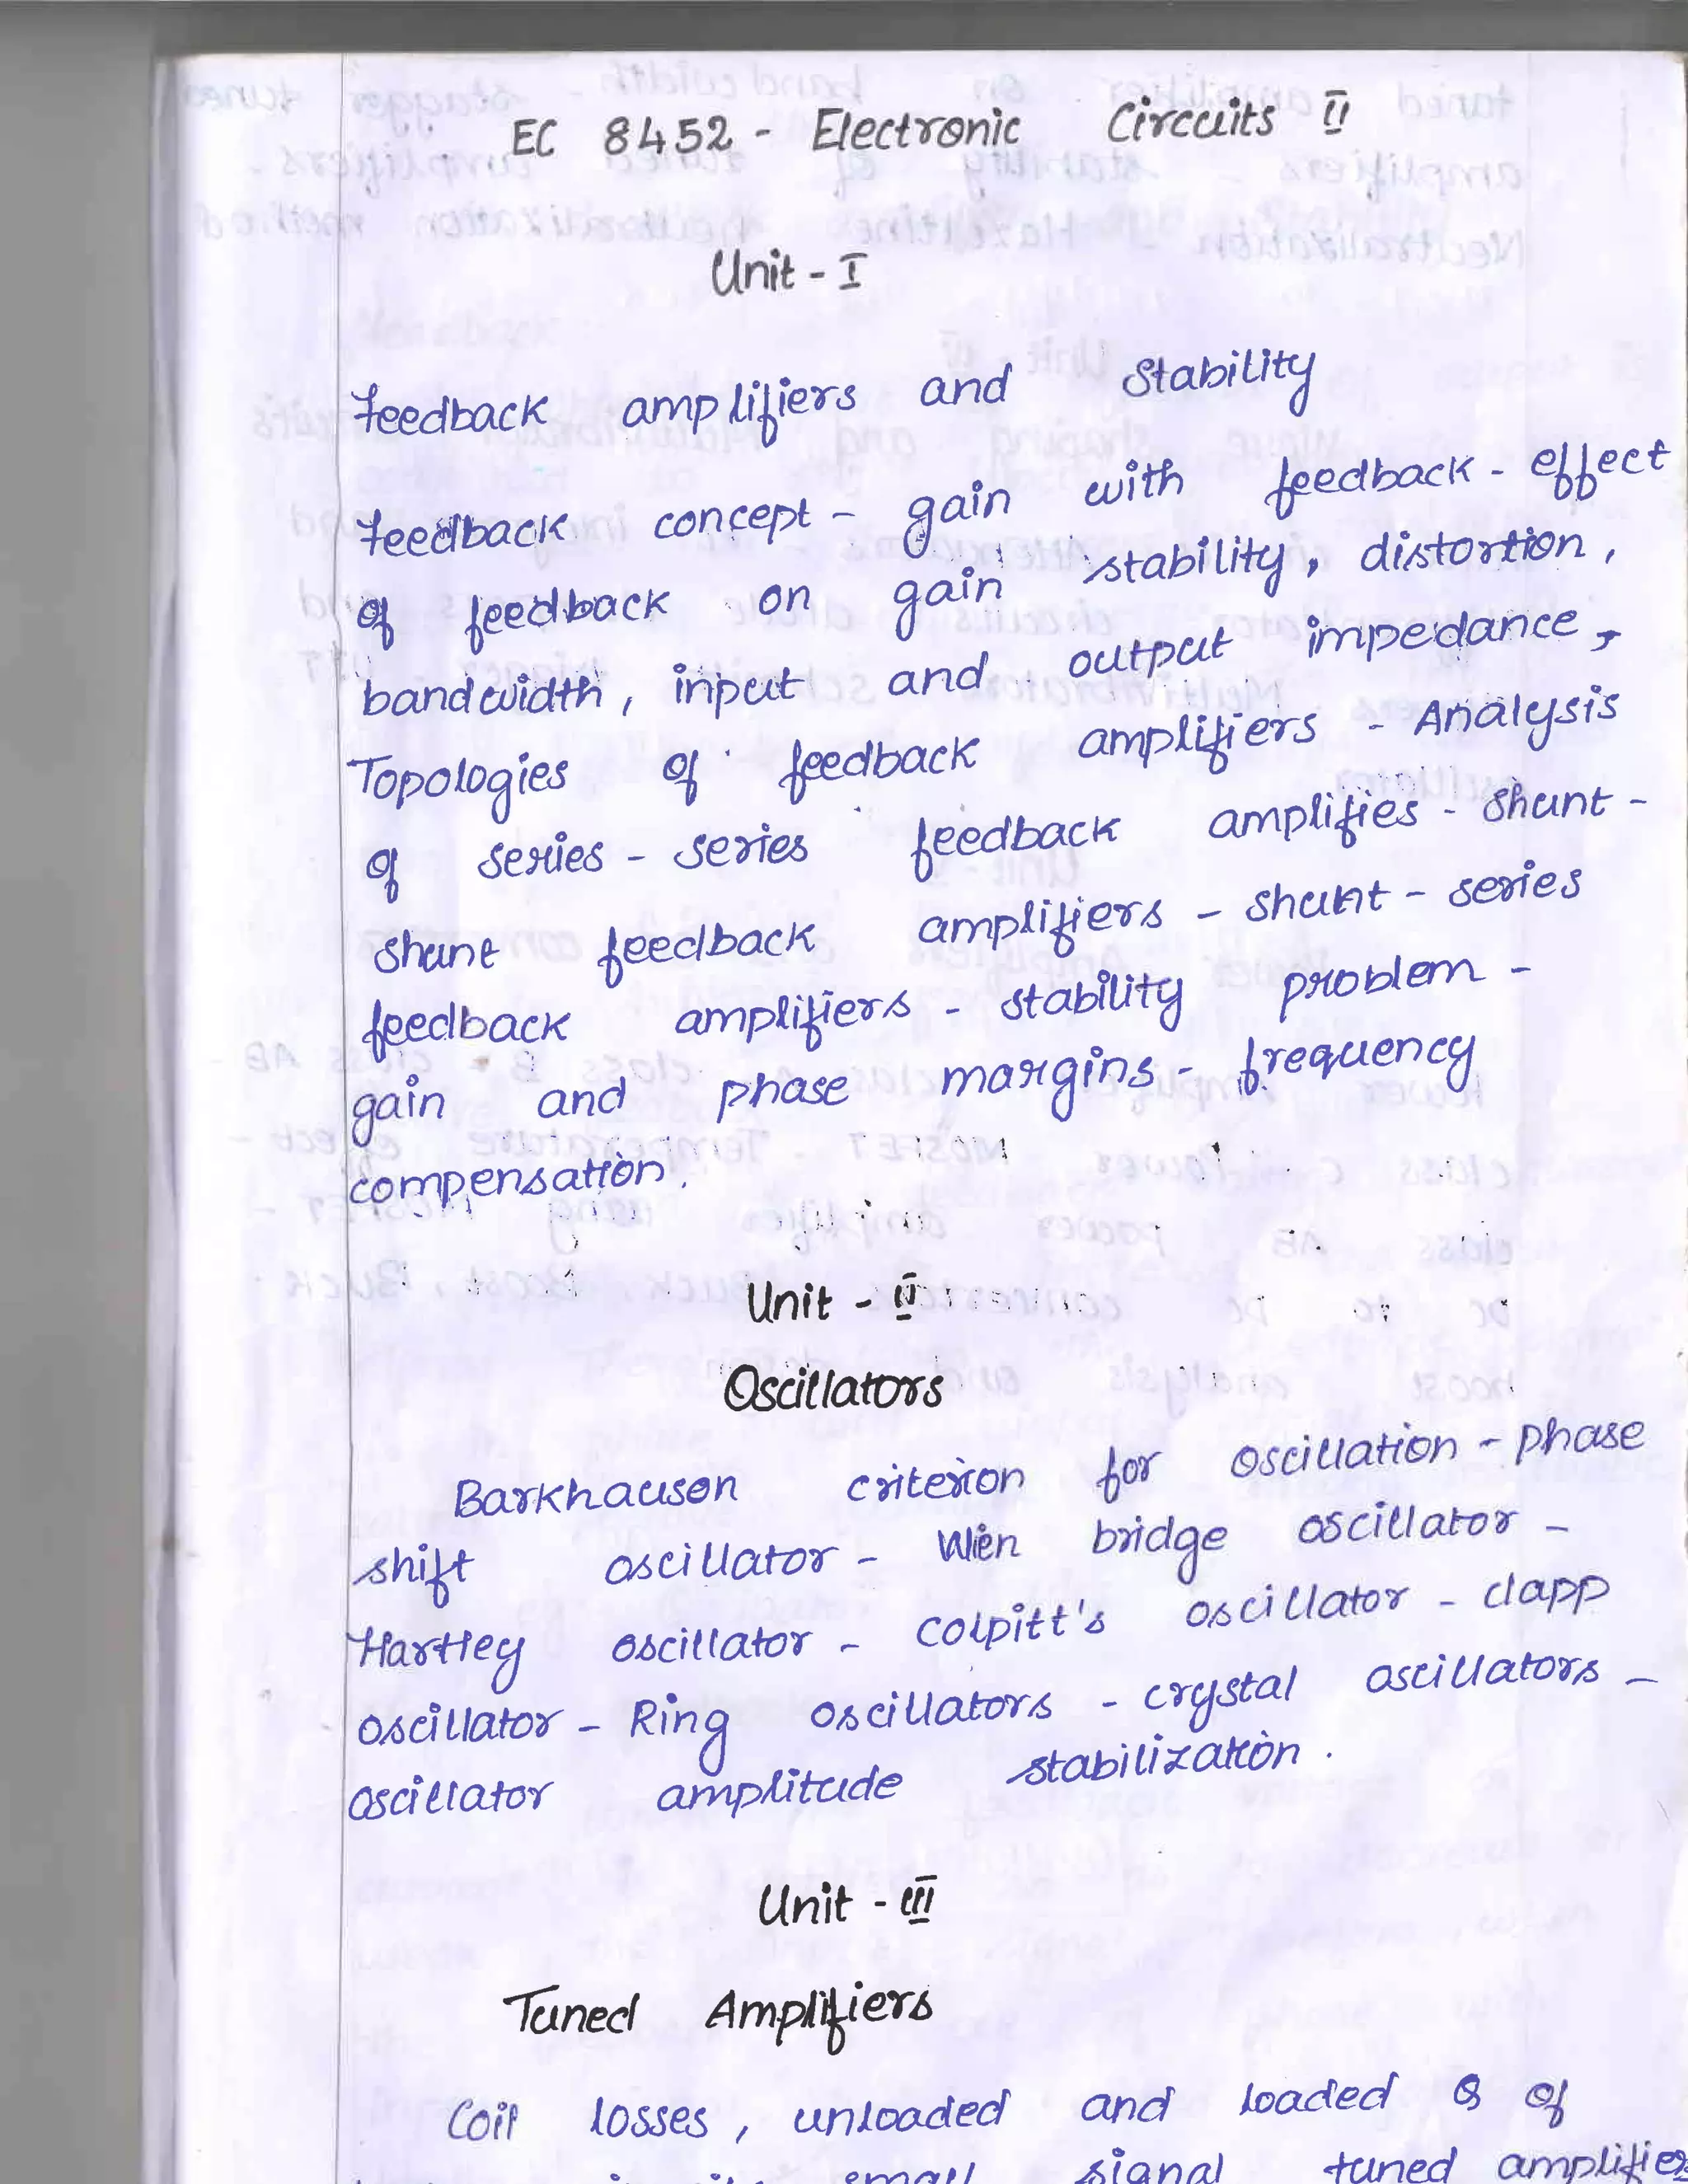 EC 8452 - Electronic Circuits II
Unit - I
Feedback amplifiers and Stability
Feedback concept - gain with feedback - effect
of feedback on gain stability, distortion,
bandwidth, input and output impedance,
Topologies of feedback amplifiers - Analysis
of series - series feedback amplifies - shunt -
shunt feedback amplifiers - shunt - series
feedback amplifiers - stability problem -
gain and phase margins - frequency
compensation.
Unit - II
Oscillators
Barkhauson criterion for oscillation - phase
shift oscillator - Wien bridge oscillator -
Hartley oscillator - colpitt's oscillator - clapp
oscillator - Ring oscillators - crystal oscillators -
oscillator amplitude stabilization.
Unit - III
Tuned Amplifiers
Coil losses, unloaded and loaded Q of
small signal tuned amplifies